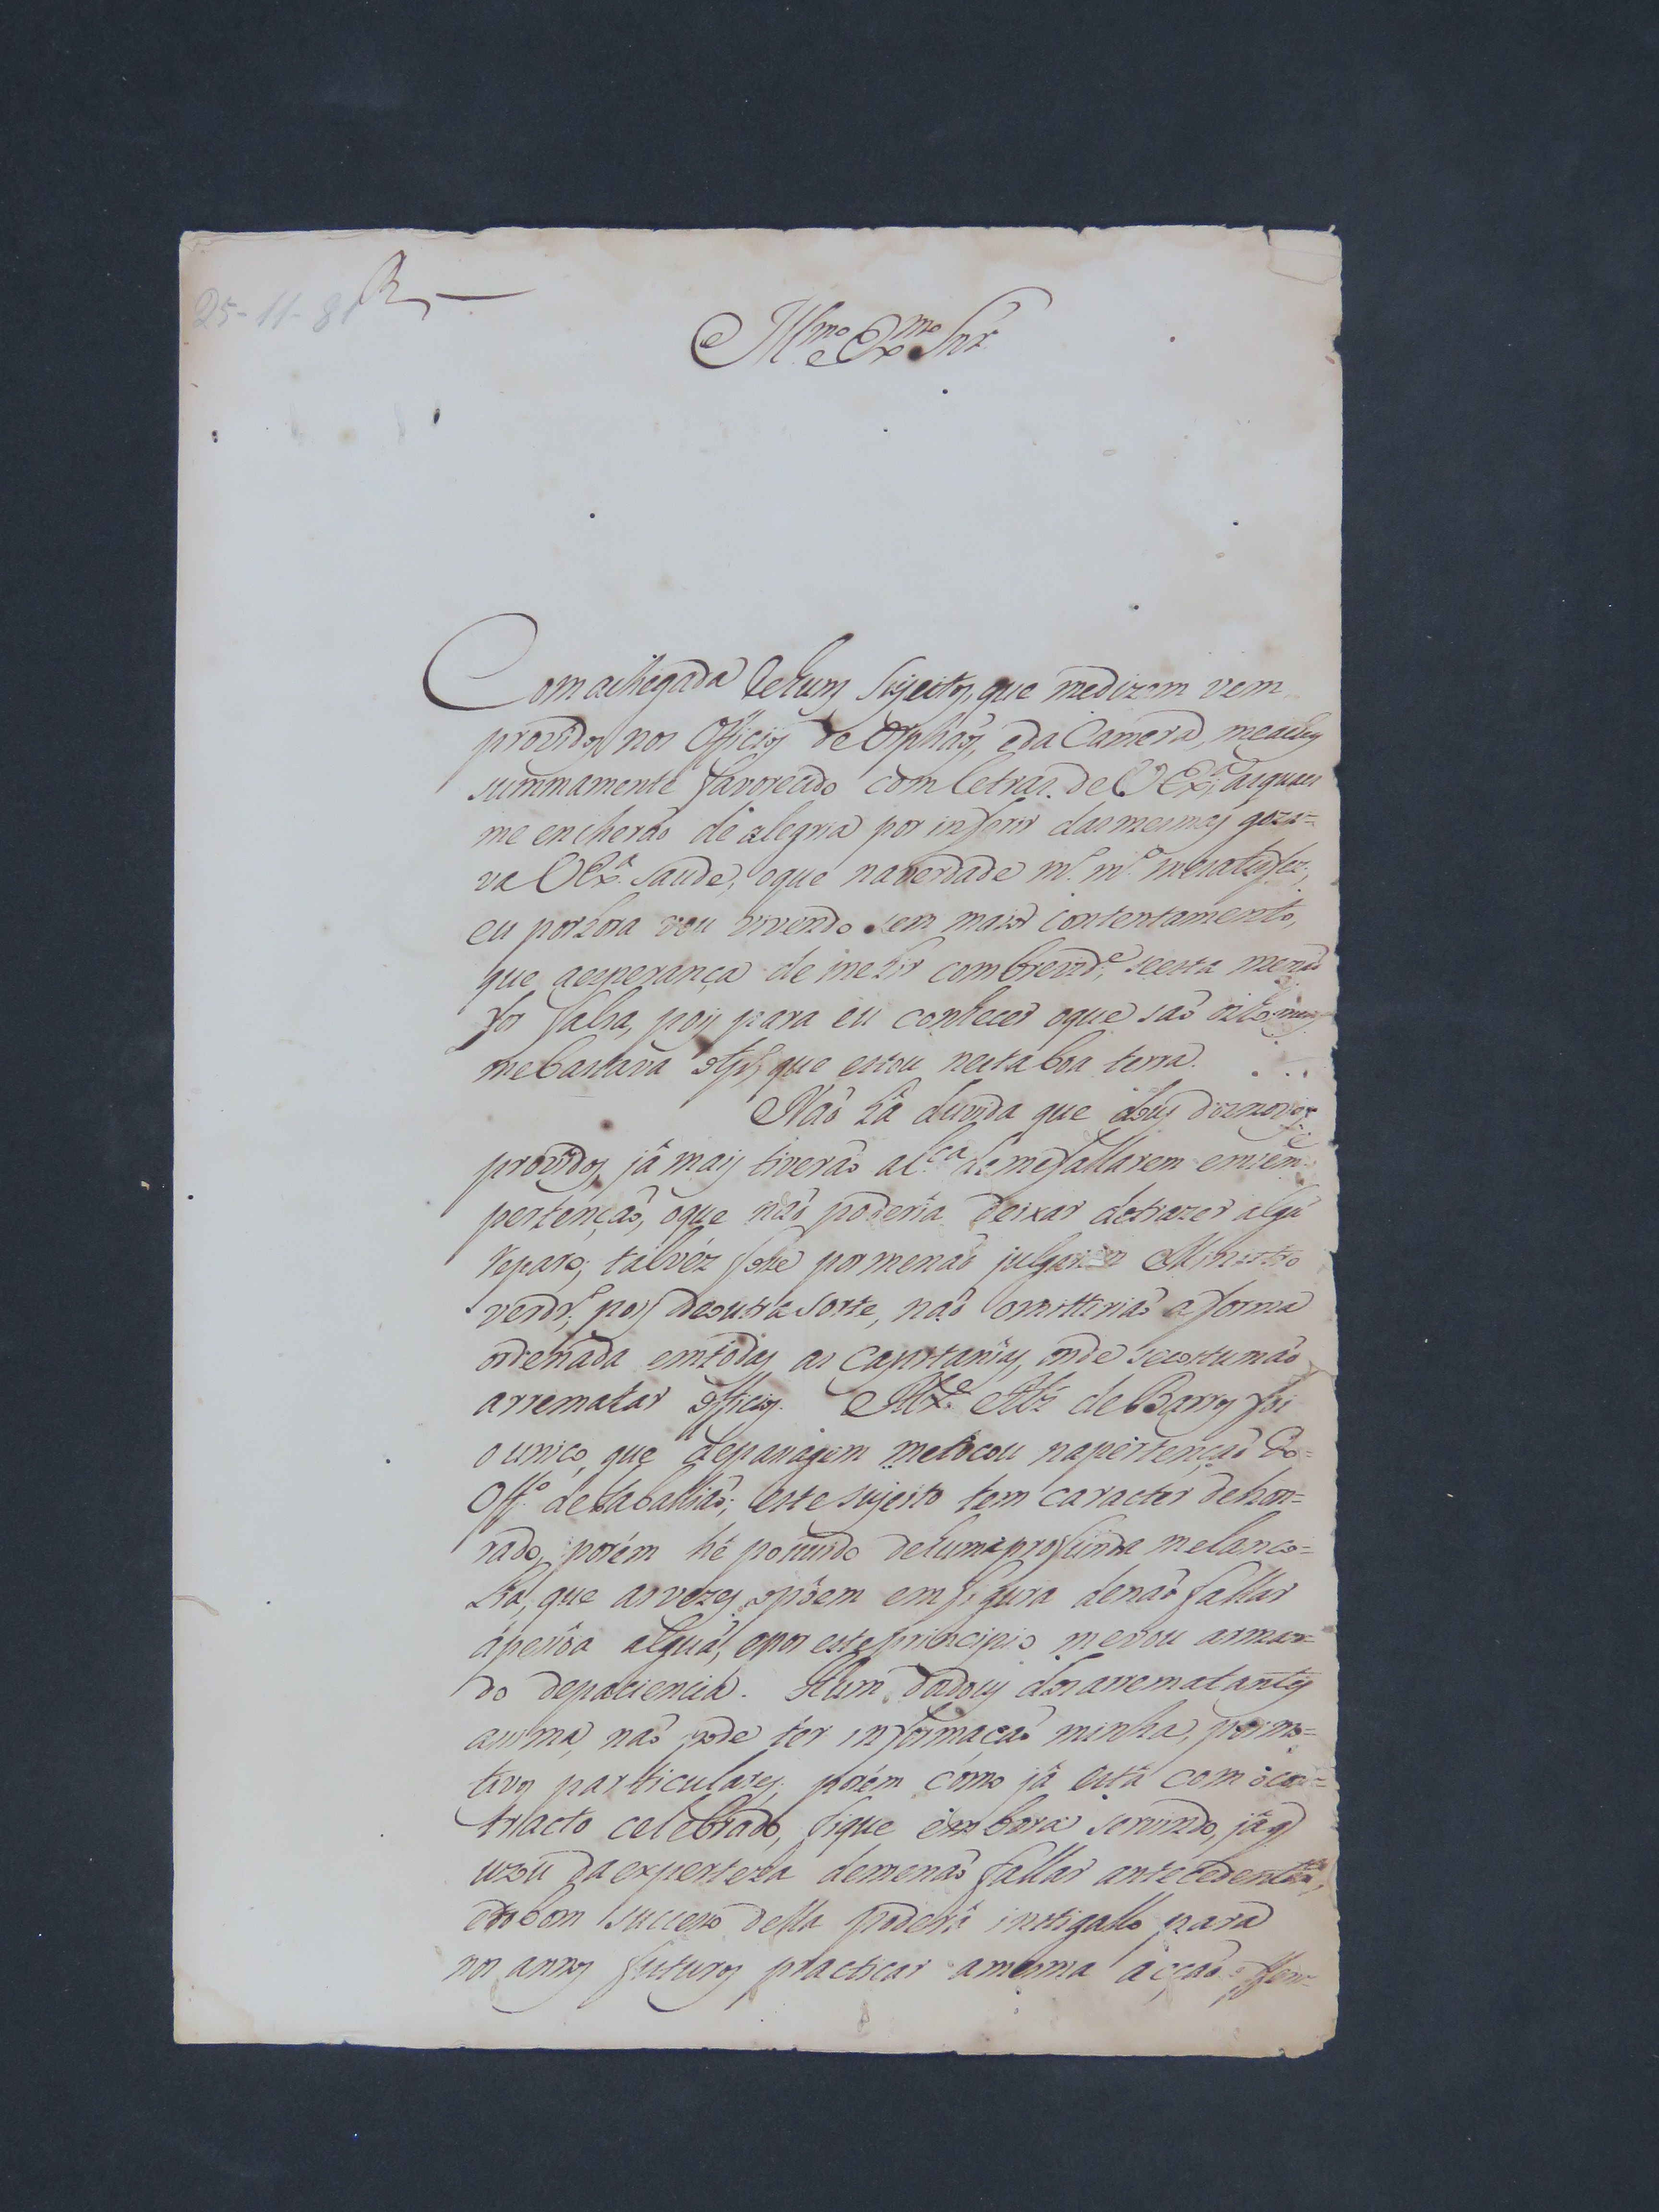 25-11-81 R
Ill.mo e Ex.mo Snr.
Com achegada dehuns Sujeitos, que medizem vem
providos nos Officios de Orphaõs, eda Camera, meachey
summamente favorecido com letras de V Ex.ª, asquaes
me encheraõ de alegria por inferir dasmesmas goza=
va V Ex.ª saude, oque naverdade m.to m.to mesatisfez;
eu porhora vou vivendo sem maior contentamento,
que aesperança de me hir combrevid.e, seesta menaõ
for falsa, pois para eu conhecer oque saõ
mebastava que estou nesta boa terra.
Naõ hâ duvida que dous
providos, jâ mais tiveraõ al.ca de mefallarem em sem.
pertençaõ, oque naõ poderia deixar detrazer algũ
reparo; talvéz fosse pormenaõ julgarem Ministro
verdr.o, pois deoutra sorte, naõ omittiriaõ a forma
ordenada emtodas as Capitanias, onde secostumaõ
arrematar officios. Alz' de Barros foi
o unico, que depassagem metocou napertençaõ do
Off.o deTaballiaõ; este sujeito tem caracter dehon=
rado, porém hé possuido dehuma profunda melanco=
lia, que asvezes opõem emfigura denaõ fallar
ápessoa alguã, epor este principio mevou arman=
do depaciencia. Hum dos arrematantes
naõ pode ter informaçaõ minha, pormo=
tivos particulares; porém como jâ está com ocon=
tracto celebrado, fique embora servindo, jâ q
uzou daexperteza demenaõ fallar antecedentem.te,
bom sucesso della poderâ instigallo para
nos annos futuros practicar amesma acçaõ.